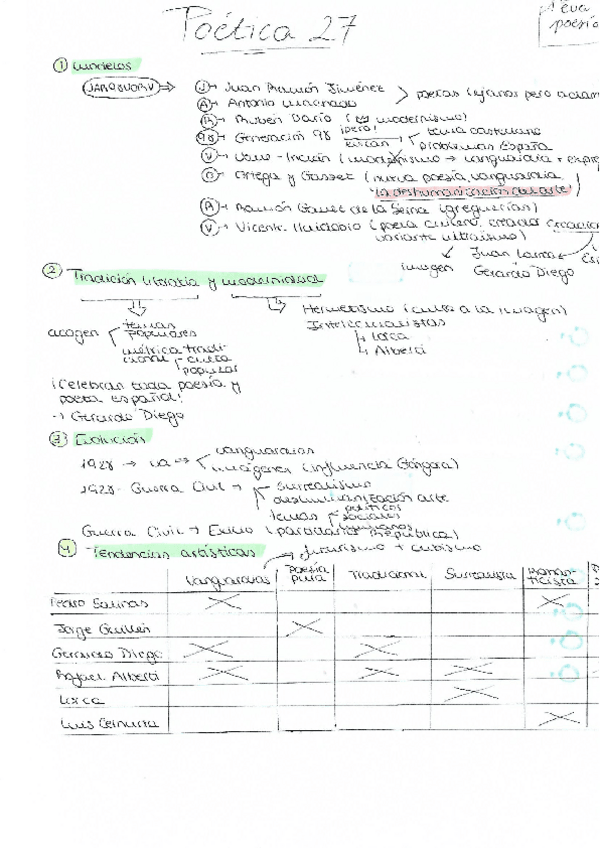 Poética 27
1 eva
poesía
① Modelos
JARQ8VORV
J → Juan Ramón Jiménez
poetas lejanos pero
A → Antonio Machado
R → Rubén Darío ( modernismo)
98 → Generación 98 ¡pero!
tema castellano
problemas España
V → Valle-Inclán (modernismo → vanguardia + expre
O → Ortega y Gasset (nueva poesía, vanguardia
"la deshumanización del arte")
R → Ramón Gómez de la Serna (greguerías)
V → Vicente Huidobro (poeta chileno, creador creacion
variante ultraísmo)
imagen
Juan Larrea
Gerardo Diego
② Tradición literaria y modernidad
acogen
temas populares
métrica tradicional
culta
popular
Hermetismo (culto a la imagen)
Intelectualistas
Lorca
Alberti
¡Celebran toda poesía y
poeta español!
→ Gerardo Diego
③ Evolución
vanguardias
imágenes (influencia Góngora)
1928 - Guerra Civil →
surrealismo
deshumanización arte
temas
políticos
sociales
humanos
Guerra Civil → Exilio (partidarios República)
④ Tendencias artísticas
→ futurismo + cubismo
Vanguardias Poesía pura Tradicional Surrealista Roman-ticista
Pedro Salinas X X
Jorge Guillén X
Gerardo Diego X X
Rafael Alberti X X X
Lorca X
Luis Cernuda X